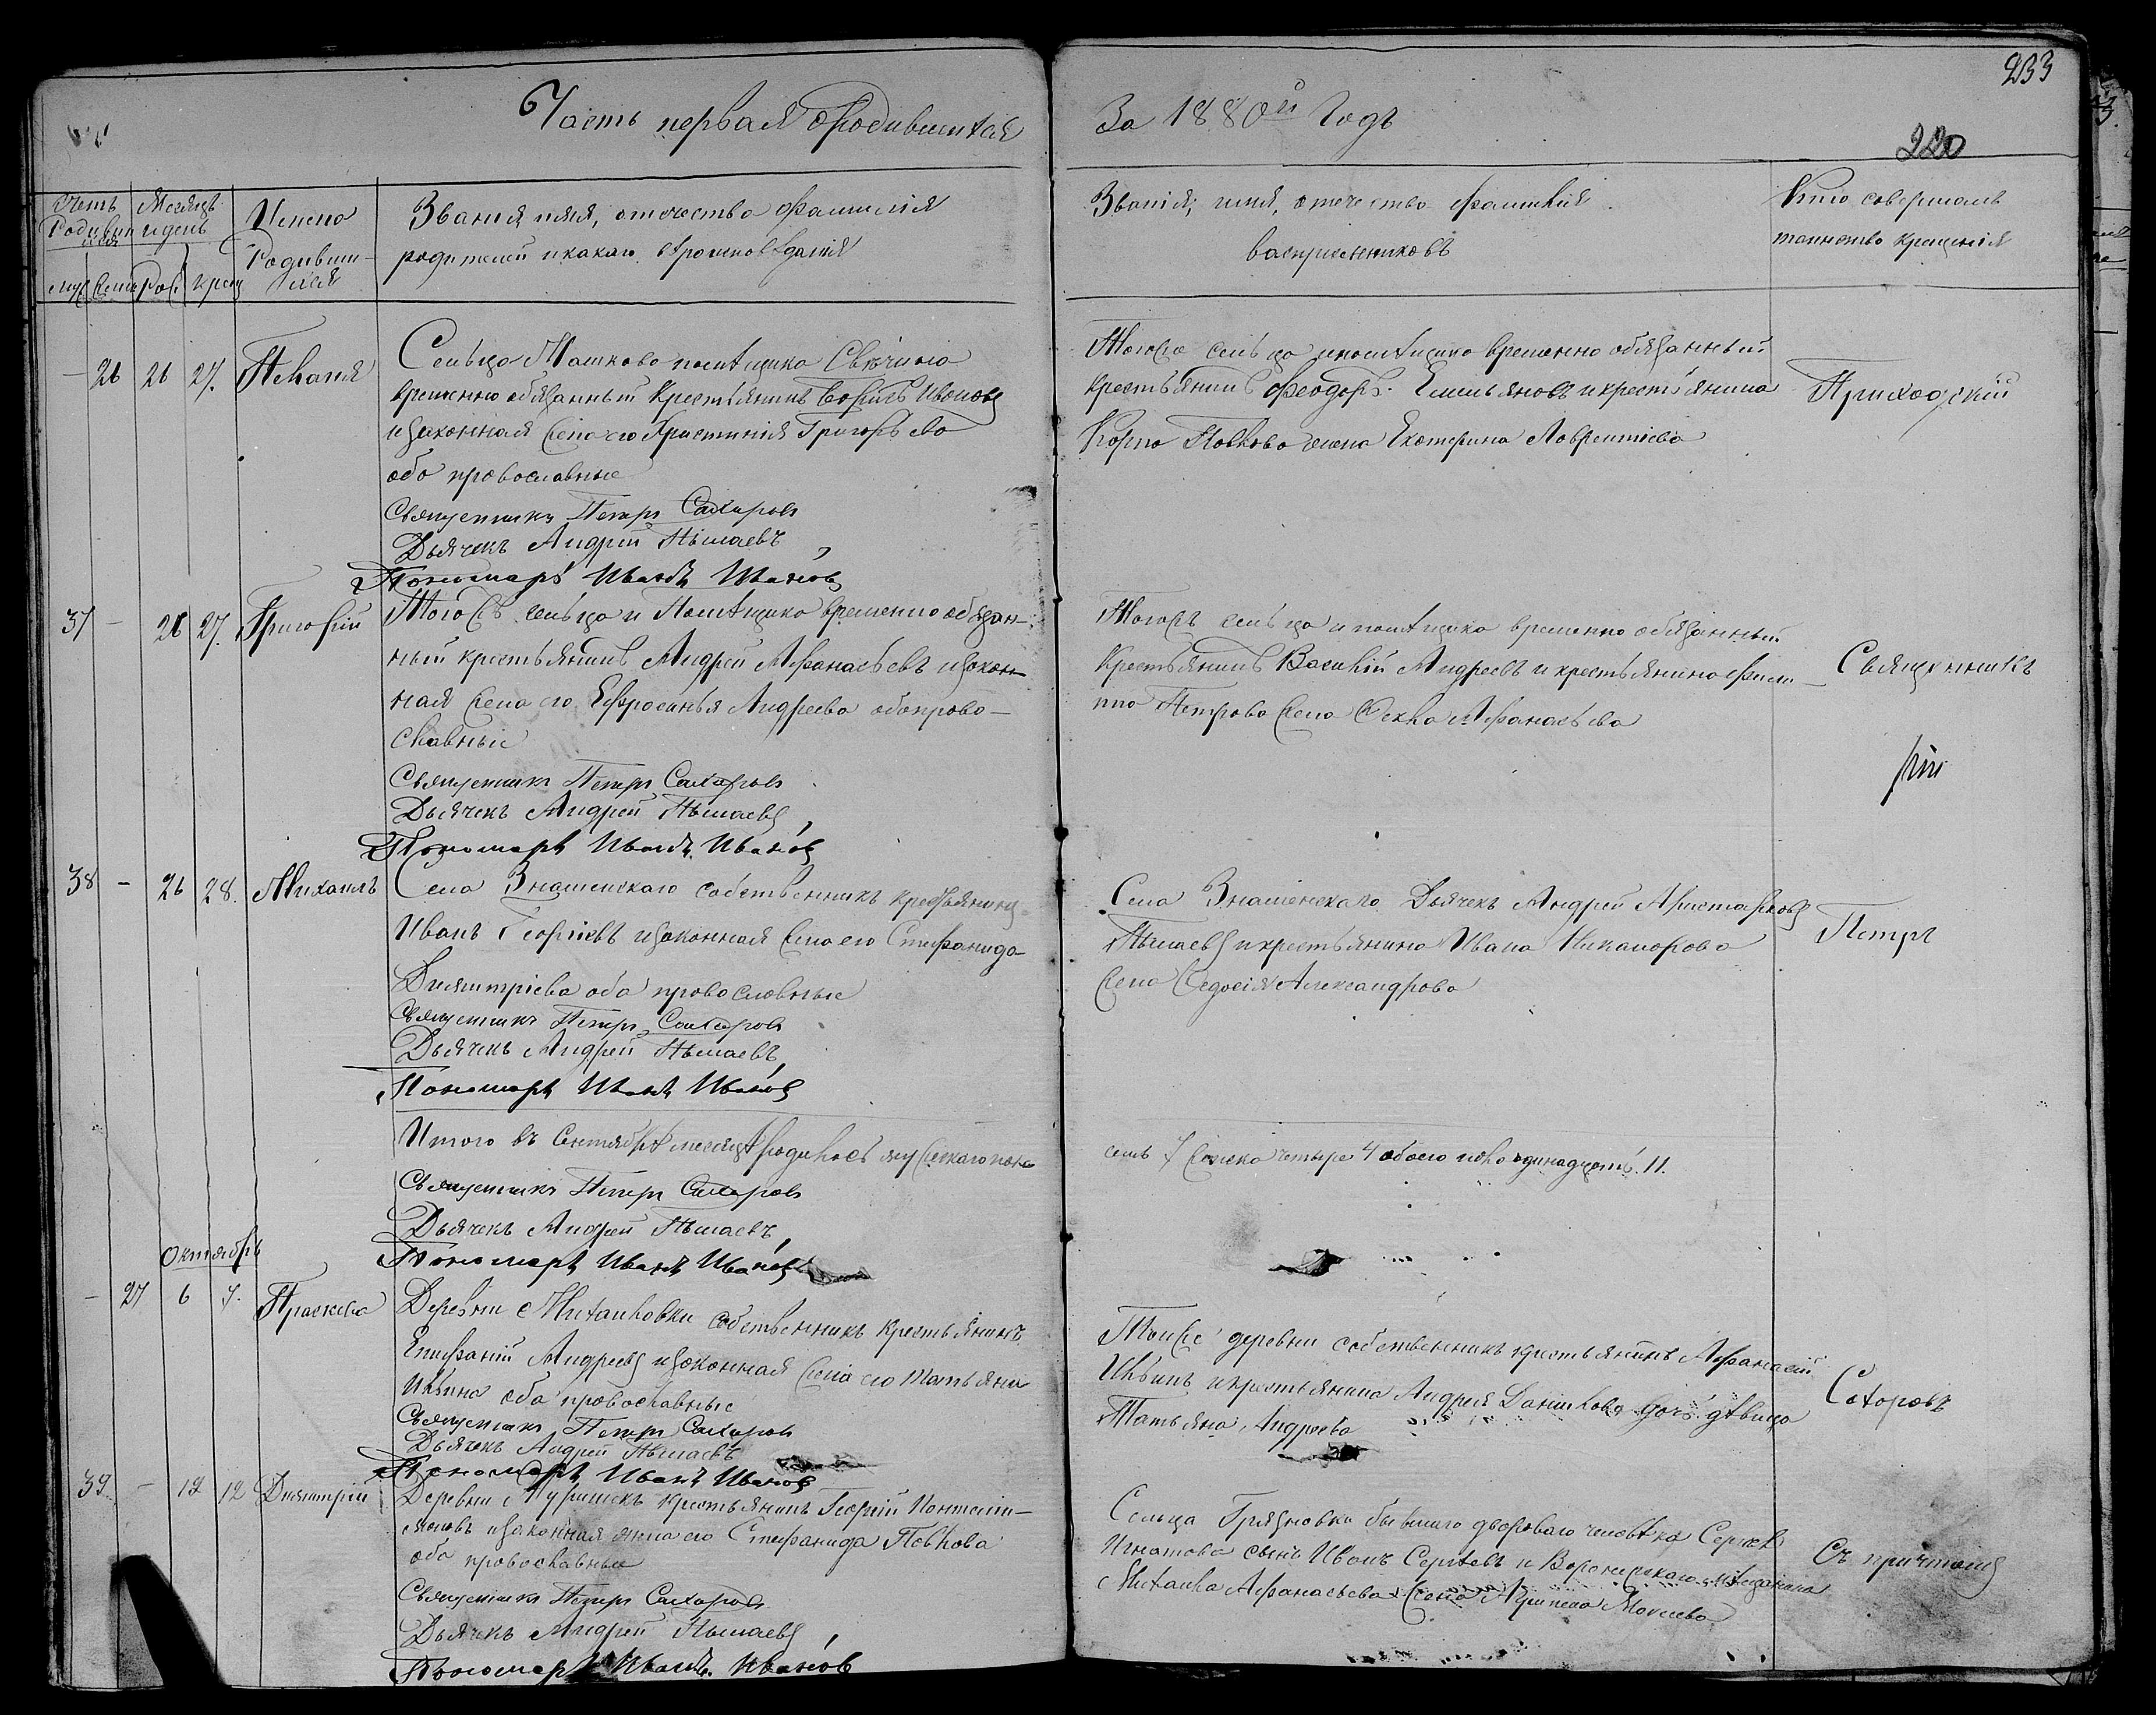 233
Часть первая о родившихся
За 1880й Годъ
220
Счетъ Родившихся
Месяцъ и день
Имена Родивши-хся
муж Жен Рож крещ
Звания имя, отчество Фамилія
родителей и какаго вѣроисповѣданія
Званія, имя, отечество фамилія
васприемниковъ
Кто совершалъ
таинство крещенія
– 26 26 27. Пелагія
Сельца Машкова помѣщика Свѣчина
временно обязанный Крестьянинъ Іосифъ Ивановъ
и законная Жена его Христинія Григорьева
оба провославные
Священникъ Петръ Сахаровъ
Дьячекъ Андрей Пышаевъ
Пономарь Иванъ Ивановъ
Тогоже сельца и помѣщика временно обязанный
крестьянинъ Феодоръ Емельяновъ и крестьянина
Карпа Павлова жена Екатерина Лаврентіева
Приходскій
37 – 26 27. Григорій
Тогожъ сельца и Помѣщика временно обязан-
ный крестьянинъ Андрей Афанасьевъ и закон-
ная Жена его Ефросинья Андреева оба право-
славные
Священникъ Петръ Сахаровъ
Дьячекъ Андрей Пышаевъ
Пономарь Иванъ Ивановъ
Тогожъ сельца и помѣщика временно обязанный
Крестьянинъ Василій Андреевъ и крестьянина Фили-
ппа Петрова Жена Фекла Афанасьева
Священникъ
38 – 26 28. Михаилъ
Села Знаменскаго собственникъ крестьянинъ
Иванъ Георгіевъ и законная Жена его Стефанида
Димитріева оба провославные
Священникъ Петръ Сахаровъ
Дьячекъ Андрей Пышаевъ
Пономарь Иванъ Ивановъ
Села Знаменскаго Дьячекъ Андрей Аристарховъ
Пышаевъ и крестьянина Ивана Никанорова
Жена Федосія Александрова
Петръ
Итого въ Сентябрѣ месяцѣ родилось мужескаго пола
семь 7 Женска четыре 4 обоего пола одинадцать. 11.
Священникъ Петръ Сахаровъ
Дьячекъ Андрей Пышаевъ
Пономарь Иванъ Ивановъ
Октябрь
– 27 6 7. Праскева
Деревни Михаиловки собственникъ крестьянинъ
Епифаній Андреевъ и законная Жена его Татьяна
Ильина оба провославные
Священникъ Петръ Сахаровъ
Дьячекъ Андрей Пышаевъ
Пономарь Иванъ Ивановъ
Тойже деревни собственникъ крестьянинъ Афанасій
Ильинъ и крестьянина Андрея Данилова дочь дѣвица
Татьяна Андреева
Сахоровъ
39 – 12 12 Димитрій
Деревни крестьянинъ Георгій Пантелей-
моновъ и законная жена его Стефанида Павлова
оба провославные
Священникъ Петръ Сахаровъ
Дьячекъ Андрей Пышаевъ
Пономарь Иванъ Ивановъ
Сельца Грязновки бывшаго двороваго человѣка Сергѣя
Игнатова сынъ Иванъ Сергѣевъ и Воронежскаго мѣщанина
Михаила Афанасьева Жена Агрипена Моисеева
Съ причтомъ